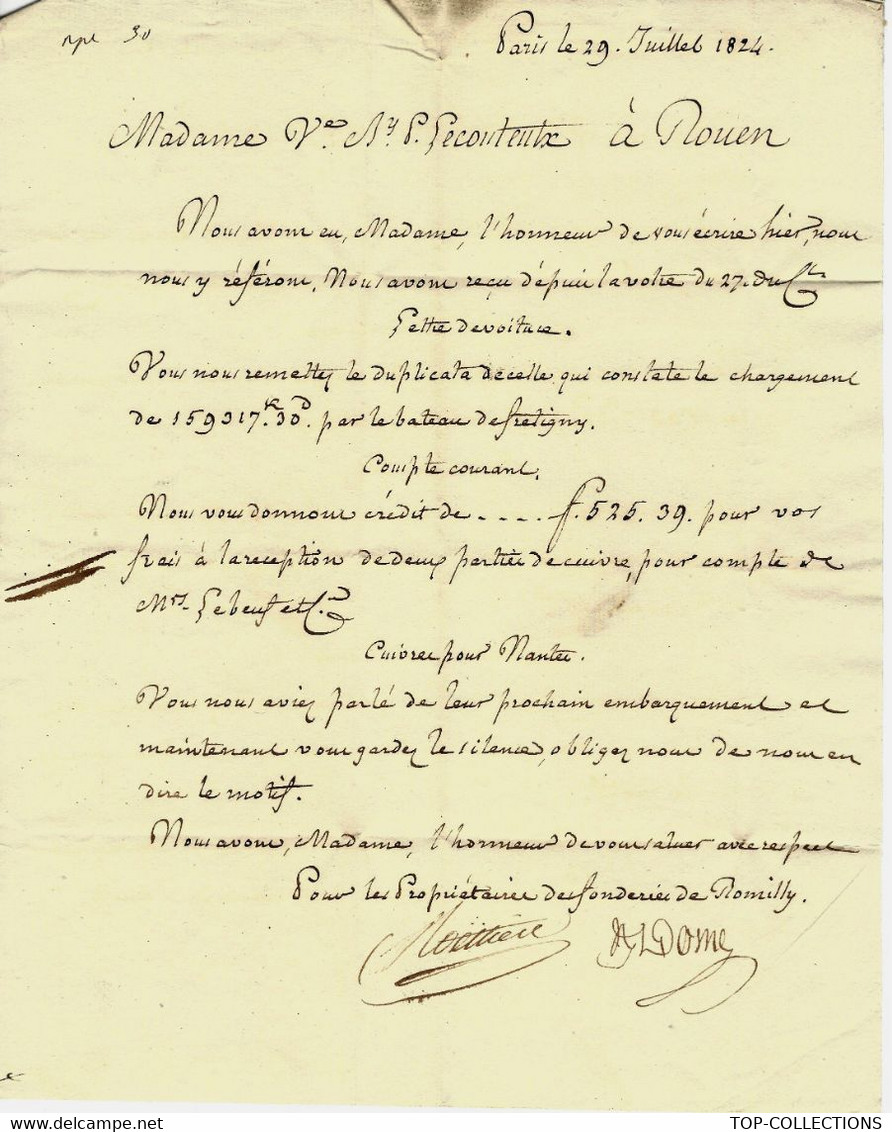 rpe 30
Paris le 29. Juillet 1824.
Madame Ve. P. Lecouteulx à Rouen
Nous avons eu, Madame, l'honneur de vous écrire hier, nous
nous y référons. Nous avons reçu dépuis la votre du 27. du Ct.
Lettre de voiture.
Vous nous remettez le duplicata de celle qui constate le chargement
de 159317.k 30D. par le bateau de fretigny.
Compte courant.
Nous vous donnons crédit de - . . . f. 525. 39. pour vos
frais à la reception de deux parties de cuivre, pour compte de
Mrs. Lebeuf et C.ie
Cuivres pour Nantes.
Vous nous aviez parlé de leur prochain embarquement et
maintenant vous gardez le silence, obligez nous de nous en
dire le motif.
Nous avons, Madame, l'honneur de vous saluer avec respect
Pour les Propriétaires des fonderies de Romilly.
TOP-COLLECTIONS